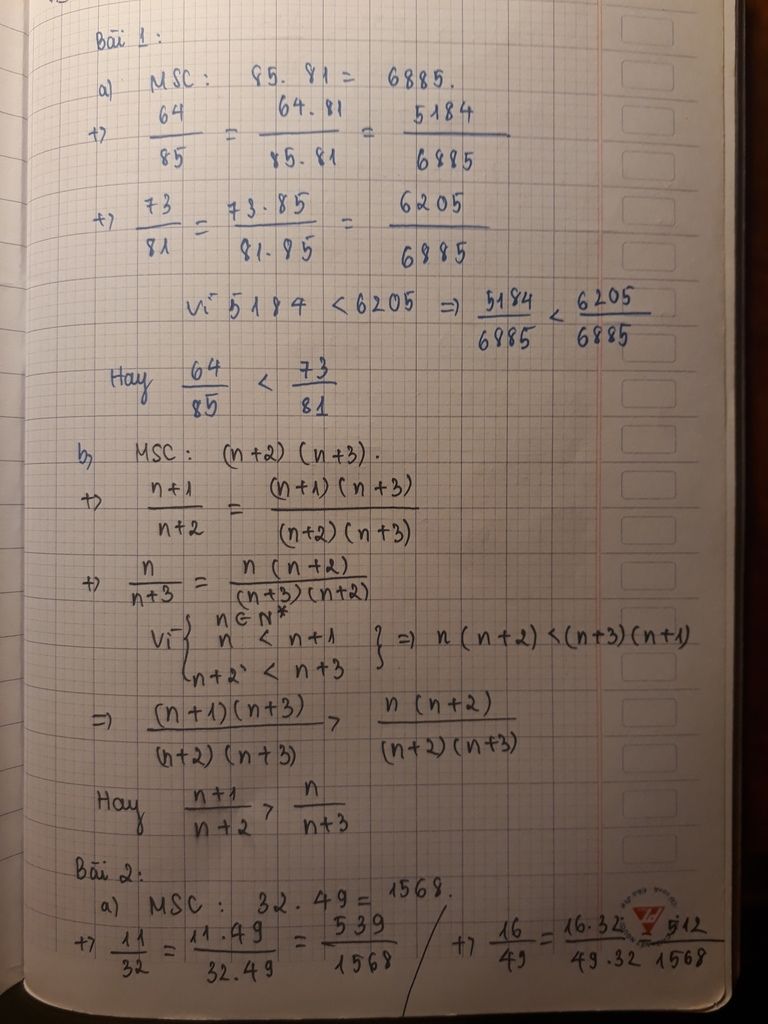 Bài 1:
a) MSC: 85. 81 = 6885.
+) 64/85 = 64.81/85.81 = 5184/6885
+) 73/81 = 73.85/81.85 = 6205/6885
Vì 5184 < 6205 => 5184/6885 < 6205/6885
Hay 64/85 < 73/81
b) MSC: (n+2) (n+3).
+) n+1/n+2 = (n+1) (n+3)/(n+2) (n+3)
+) n/n+3 = n (n+2)/(n+3) (n+2)
Vì { n ∈ N*
n < n+1 } => n (n+2) < (n+3) (n+1)
n+2 < n+3
=> (n+1) (n+3)/(n+2) (n+3) > n (n+2)/(n+2) (n+3)
Hay n+1/n+2 > n/n+3
Bài 2:
a) MSC: 32. 49 = 1568.
+) 11/32 = 11.49/32.49 = 539/1568 / +) 16/49 = 16.32/49.32 512/1568